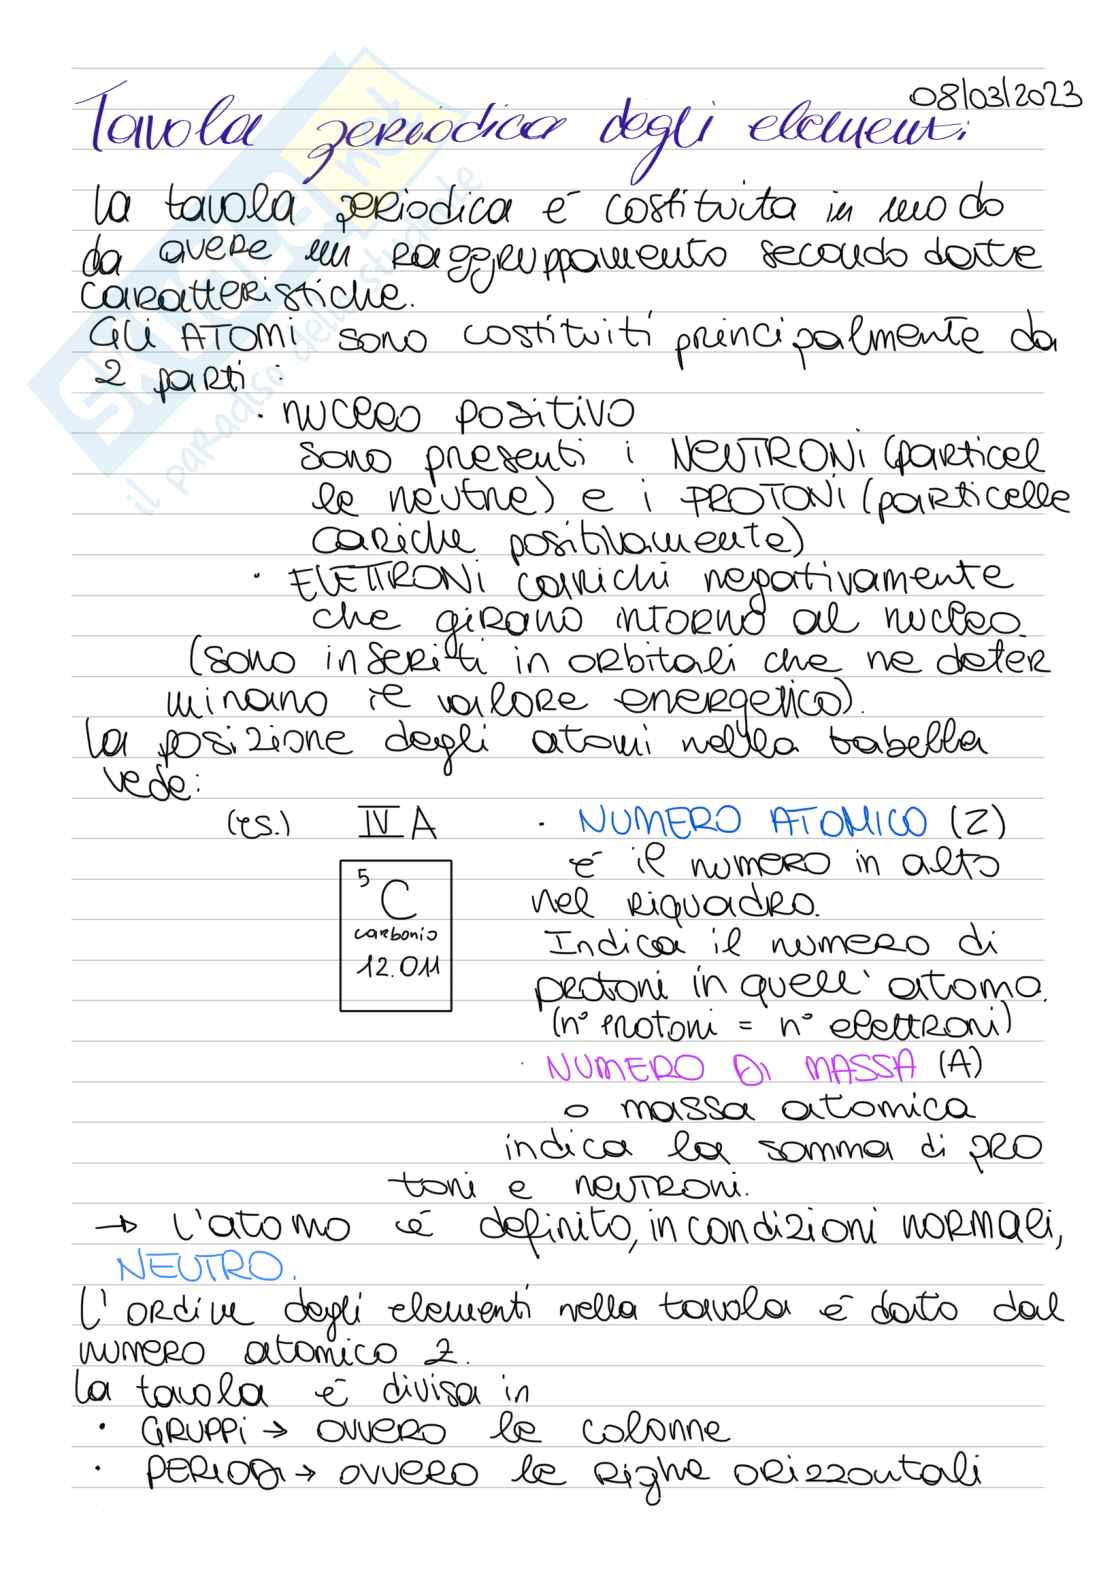 08/03/2023
Tavola periodica degli elementi
La tavola periodica è costituita in modo
da avere un raggruppamento secondo date
caratteristiche.
Gli ATOMI sono costituiti principalmente da
2 parti:
· nucleo positivo
sono presenti i NEUTRONI (particel
le neutre) e i PROTONI (particelle
cariche positivamente)
· ELETTRONI carichi negativamente
che girano intorno al nucleo.
(sono inseriti in orbitali che ne deter
minano il valore energetico).
La posizione degli atomi nella tabella
vede:
(es.) IV A
5
C
carbonio
12.011
· NUMERO ATOMICO (Z)
è il numero in alto
nel riquadro.
Indica il numero di
protoni in quell'atomo.
(n° protoni = n° elettroni)
· NUMERO DI MASSA (A)
o massa atomica
indica la somma di pro
toni e neutroni.
→ L'atomo è definito, in condizioni normali,
NEUTRO.
L'ordine degli elementi nella tavola è dato dal
numero atomico Z.
La tavola è divisa in
· GRUPPI → ovvero le colonne
· PERIODI → ovvero le righe orizzontali
SKUOLA.net
il paradiso dello studente